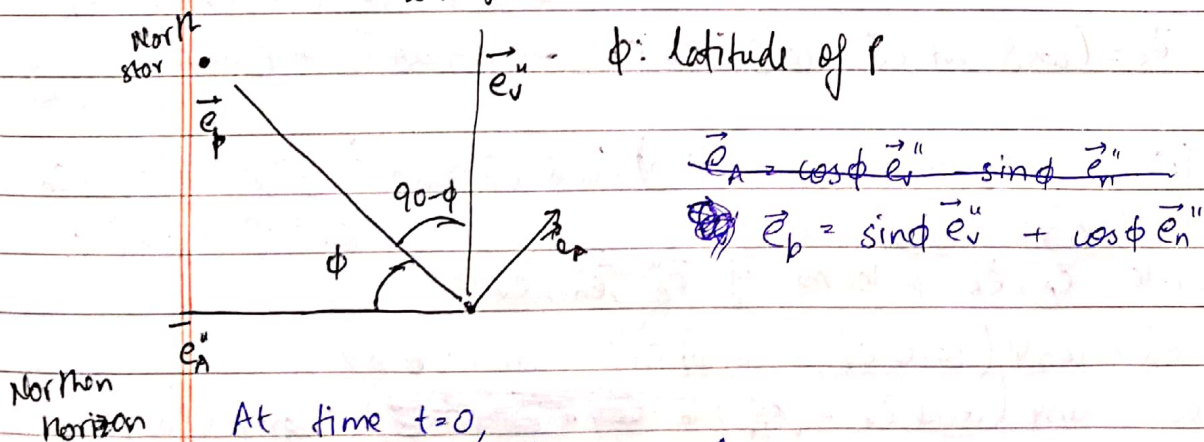 North
star
→
e_p
→
e_v"
ϕ: latitude of P
90-ϕ
ϕ
e_p
e⃗_A = cosϕ e⃗_v" - sinϕ e⃗_n"
e⃗_p = sinϕ e⃗_v" + cosϕ e⃗_n"
e_A"
Northen
Horizon
At time t=0,